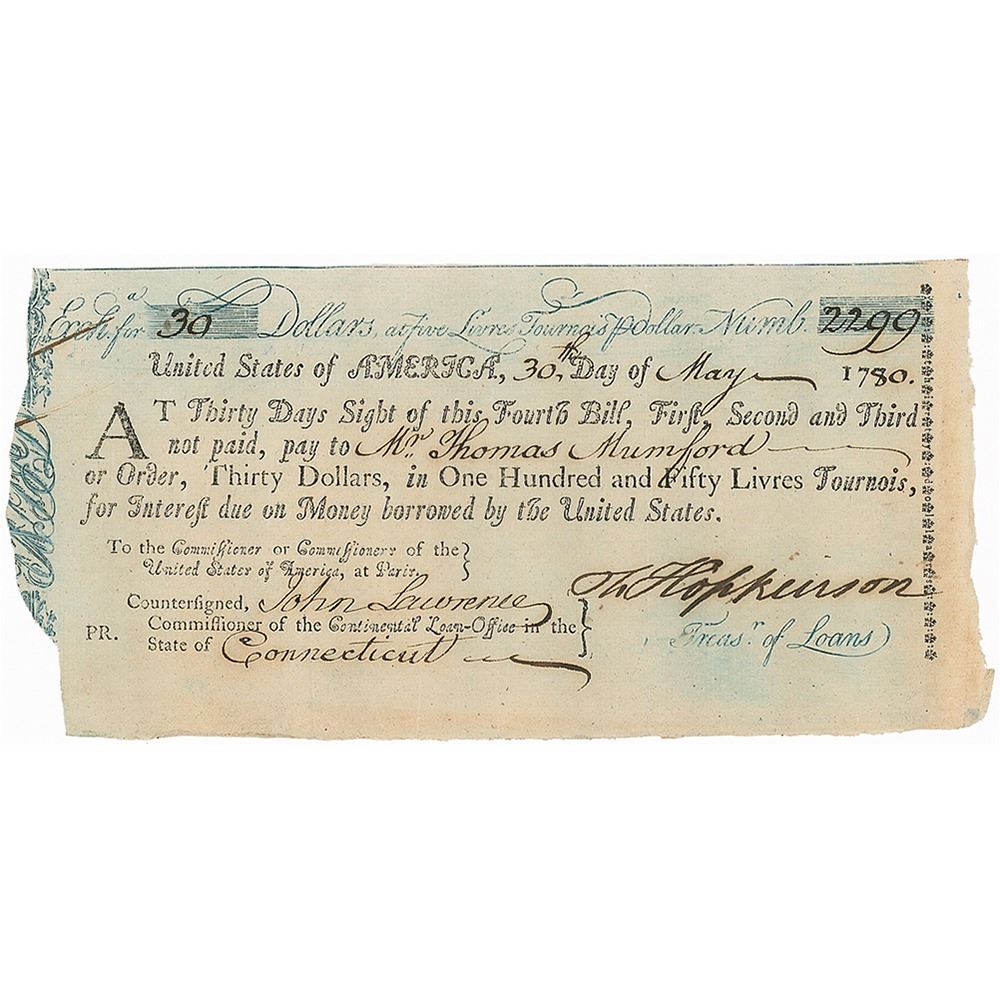 Exchᵃ. for 30 Dollars, at five Livres Tournois ⅌ Dollar. Numb. 2299
United States of AMERICA, 30th Day of May 1780.
AT Thirty Days Sight of this Fourth Bill, Firſt, Second and Third
not paid, pay to Mr. Thomas Mumford
or Order, Thirty Dollars, in One Hundred and Fifty Livres Tournois,
for Intereſt due on Money borrowed by the United States.
To the Commiſſioner or Commiſſioners of the
United States of America, at Paris.
Counterſigned, John Lawrence
Commiſſioner of the Continental Loan-Office in the
PR. State of Connecticut
Fs Hopkinson
Treasʳ. of Loans